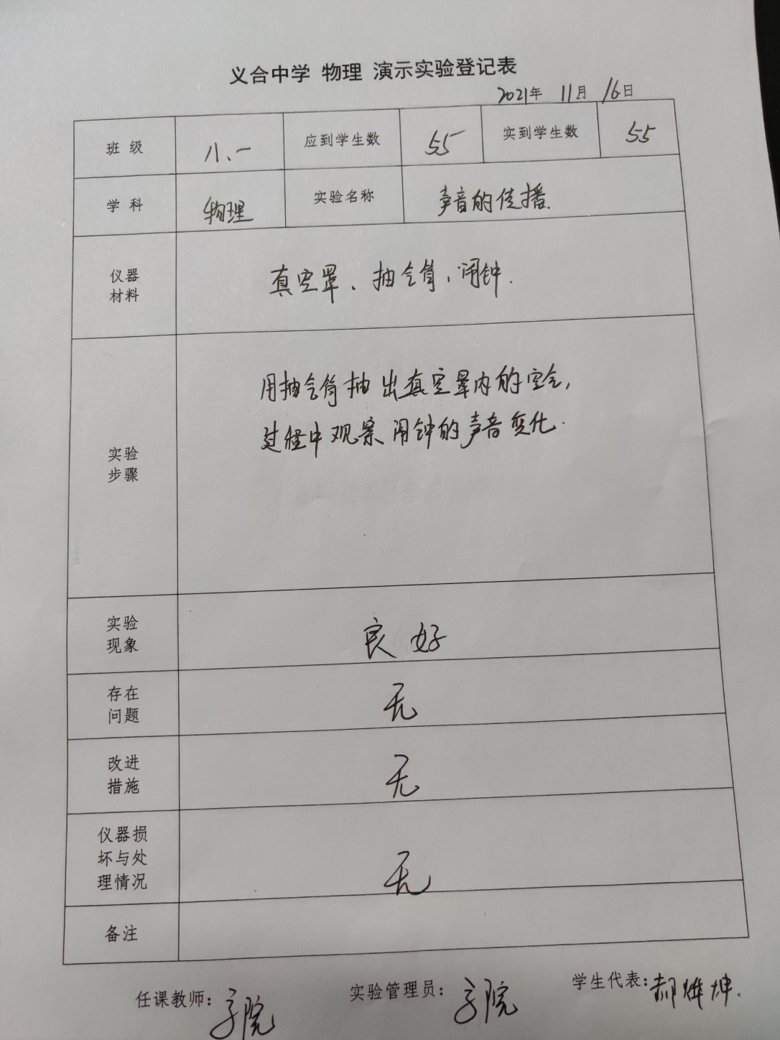 义合中学 物理 演示实验登记表
2021年 11月 16日
班级 八、一 应到学生数 55 实到学生数 55
学科 物理 实验名称 声音的传播.
仪器
材料
真空罩、抽气筒、闹钟.
用抽气筒抽出真空罩内的空气,
过程中观察闹钟的声音变化.
实验
步骤
实验
现象
良好
存在
问题
无
改进
措施
无
仪器损
坏与处
理情况
无
备注
任课教师: 实验管理员: 学生代表: